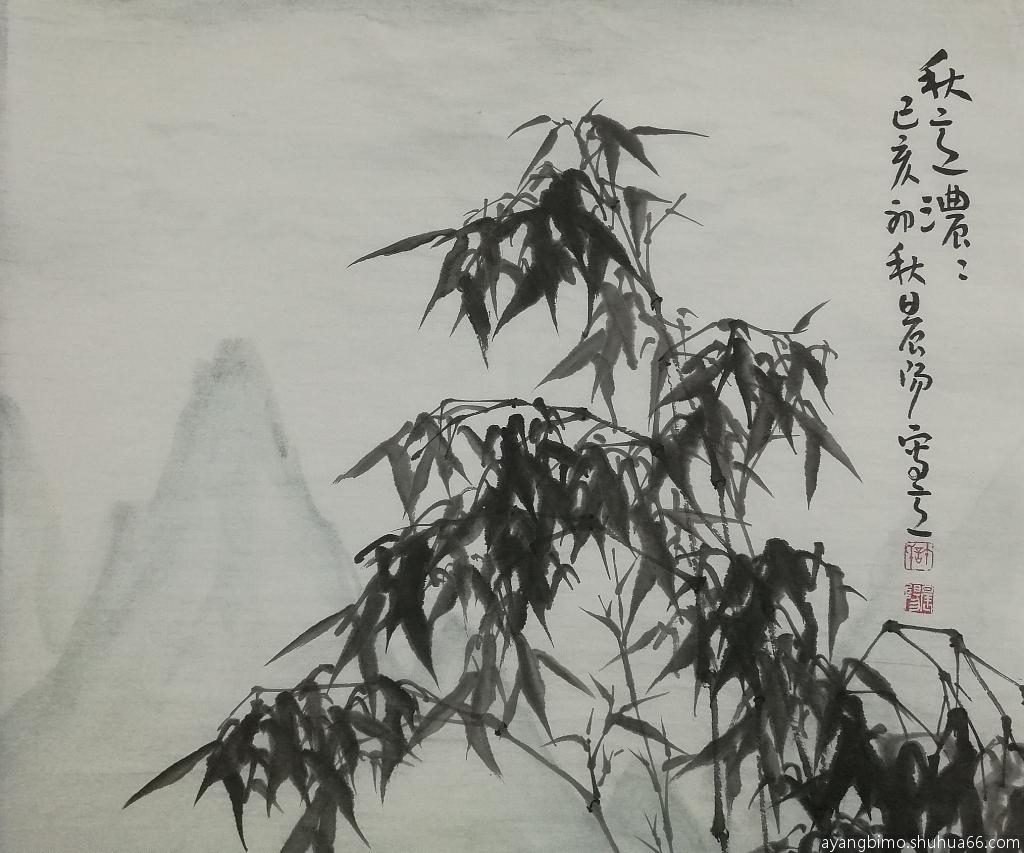 秋意濃〻
己亥初秋晨陽寫意
ayangbimo.shuhua66.com